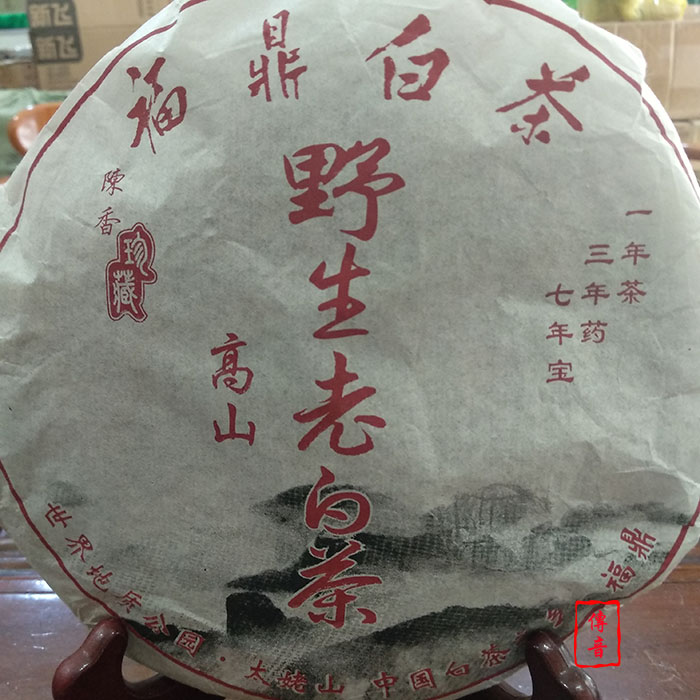 福鼎白茶
野生老白茶
高山
陳香
珍藏
一年茶
三年药
七年宝
世界地质公园·太姥山 中国白茶之乡 福鼎
傳音
新飞
新飞